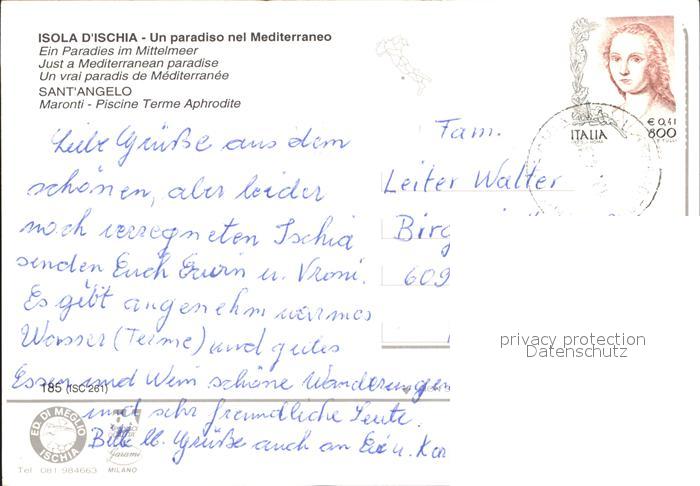 ISOLA D'ISCHIA - Un paradiso nel Mediterraneo
Ein Paradies im Mittelmeer
Just a Mediterranean paradise
Un vrai paradis de Méditerranée
SANT'ANGELO
Maronti - Piscine Terme Aphrodite
Liebe Grüße aus dem
schönen, aber leider
noch verregneten Ischia
senden Euch Erwin u. Vroni.
Es gibt angenehm warmes
Wasser (Terme) und gutes
Essen und Wein schöne Wanderungen
und sehr freundliche Leute.
Bitte lb. Grüße auch an
Fam.
Leiter Walter
Birg
609
€ 0,41
ITALIA
800
privacy protection
Datenschutz
185 (ISC 261)
ED. DI MEGLIO
ISCHIA
Tel 081 984663
Garami
MILANO